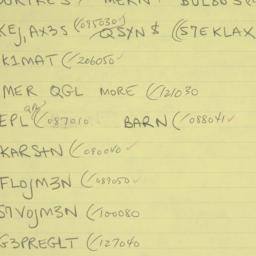 KEJ, AX3S (095030) QSYN $ ((S7EKLAX
K1MAT (206050
MER QGL MORE (121030
EPL (087010 BARN (088041
KARS+N (090040
FLOJM3N (089050
S7VOJM3N (100080
G3PREGLT (127040